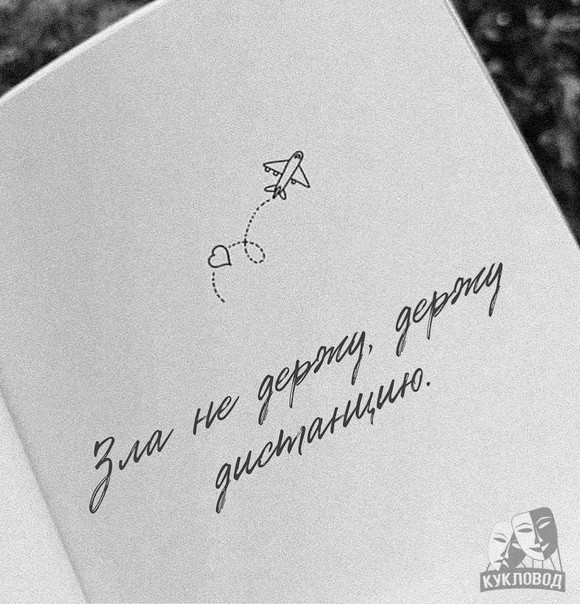 Зла не держу, держу
дистанцию.
КУКЛОВОД